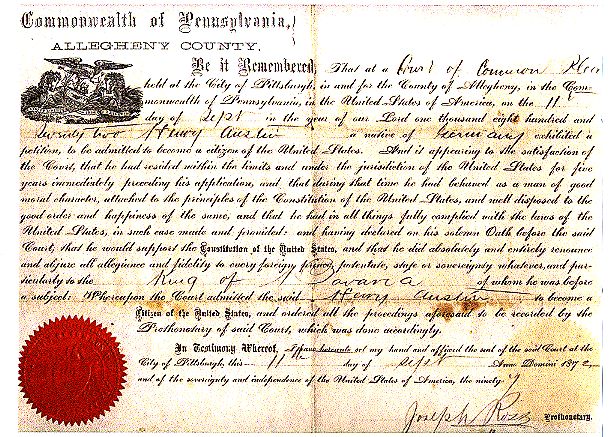 Commonwealth of Pennsylvania,
ALLEGHENY COUNTY.
Be it Remembered, That at a Court of Common Plea
held at the City of Pittsburgh, in and for the County of Allegheny, in the Com-
monwealth of Pennsylvania, in the United States of America, on the 11
day of Sept in the year of our Lord one thousand eight hundred and
seventy two Henry Austin a native of Germany exhibited a
petition, to be admitted to become a citizen of the United States. And it appearing to the satisfaction of
the Court, that he had resided within the limits and under the jurisdiction of the United States for five
years immediately preceding his application, and that during that time he had behaved as a man of good
moral character, attached to the principles of the Constitution of the United States, and well disposed to the
good order and happiness of the same, and that he had in all things fully complied with the laws of the
United States, in such case made and provided: and having declared on his solemn Oath before the said
Court, that he would support the Constitution of the United States, and that he did absolutely and entirely renounce
and abjure all allegiance and fidelity to every foreign prince, potentate, state or sovereignty whatever, and par-
ticularly to the King of Bavaria of whom he was before
a subject: Whereupon the Court admitted the said Henry Austin to become a
Citizen of the United States, and ordered all the proceedings aforesaid to be recorded by the
Prothonotary of said Court, which was done accordingly.
In Testimony Whereof, I have hereunto set my hand and affixed the seal of the said Court at the
City of Pittsburgh, this 11th day of Sept Anno Domini 1872
and of the sovereignty and independence of the United States of America, the ninety-7
Joseph Ross
Prothonotary.